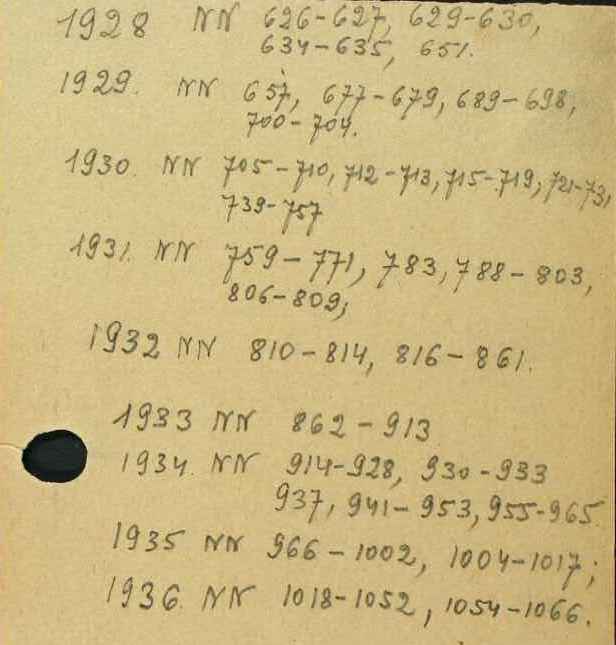 1928 NN 626-627, 629-630,
634-635, 651.
1929. NN 657, 677-679, 689-698,
700-704.
1930. NN 705-710, 712-713, 715-719, 721-731,
739-757
1931. NN 759-771, 783, 788-803,
806-809;
1932 NN 810-814, 816-861.
1933 NN 862-913
1934. NN 914-928, 930-933
937, 941-953, 955-965.
1935 NN 966-1002, 1004-1017;
1936. NN 1018-1052, 1054-1066.